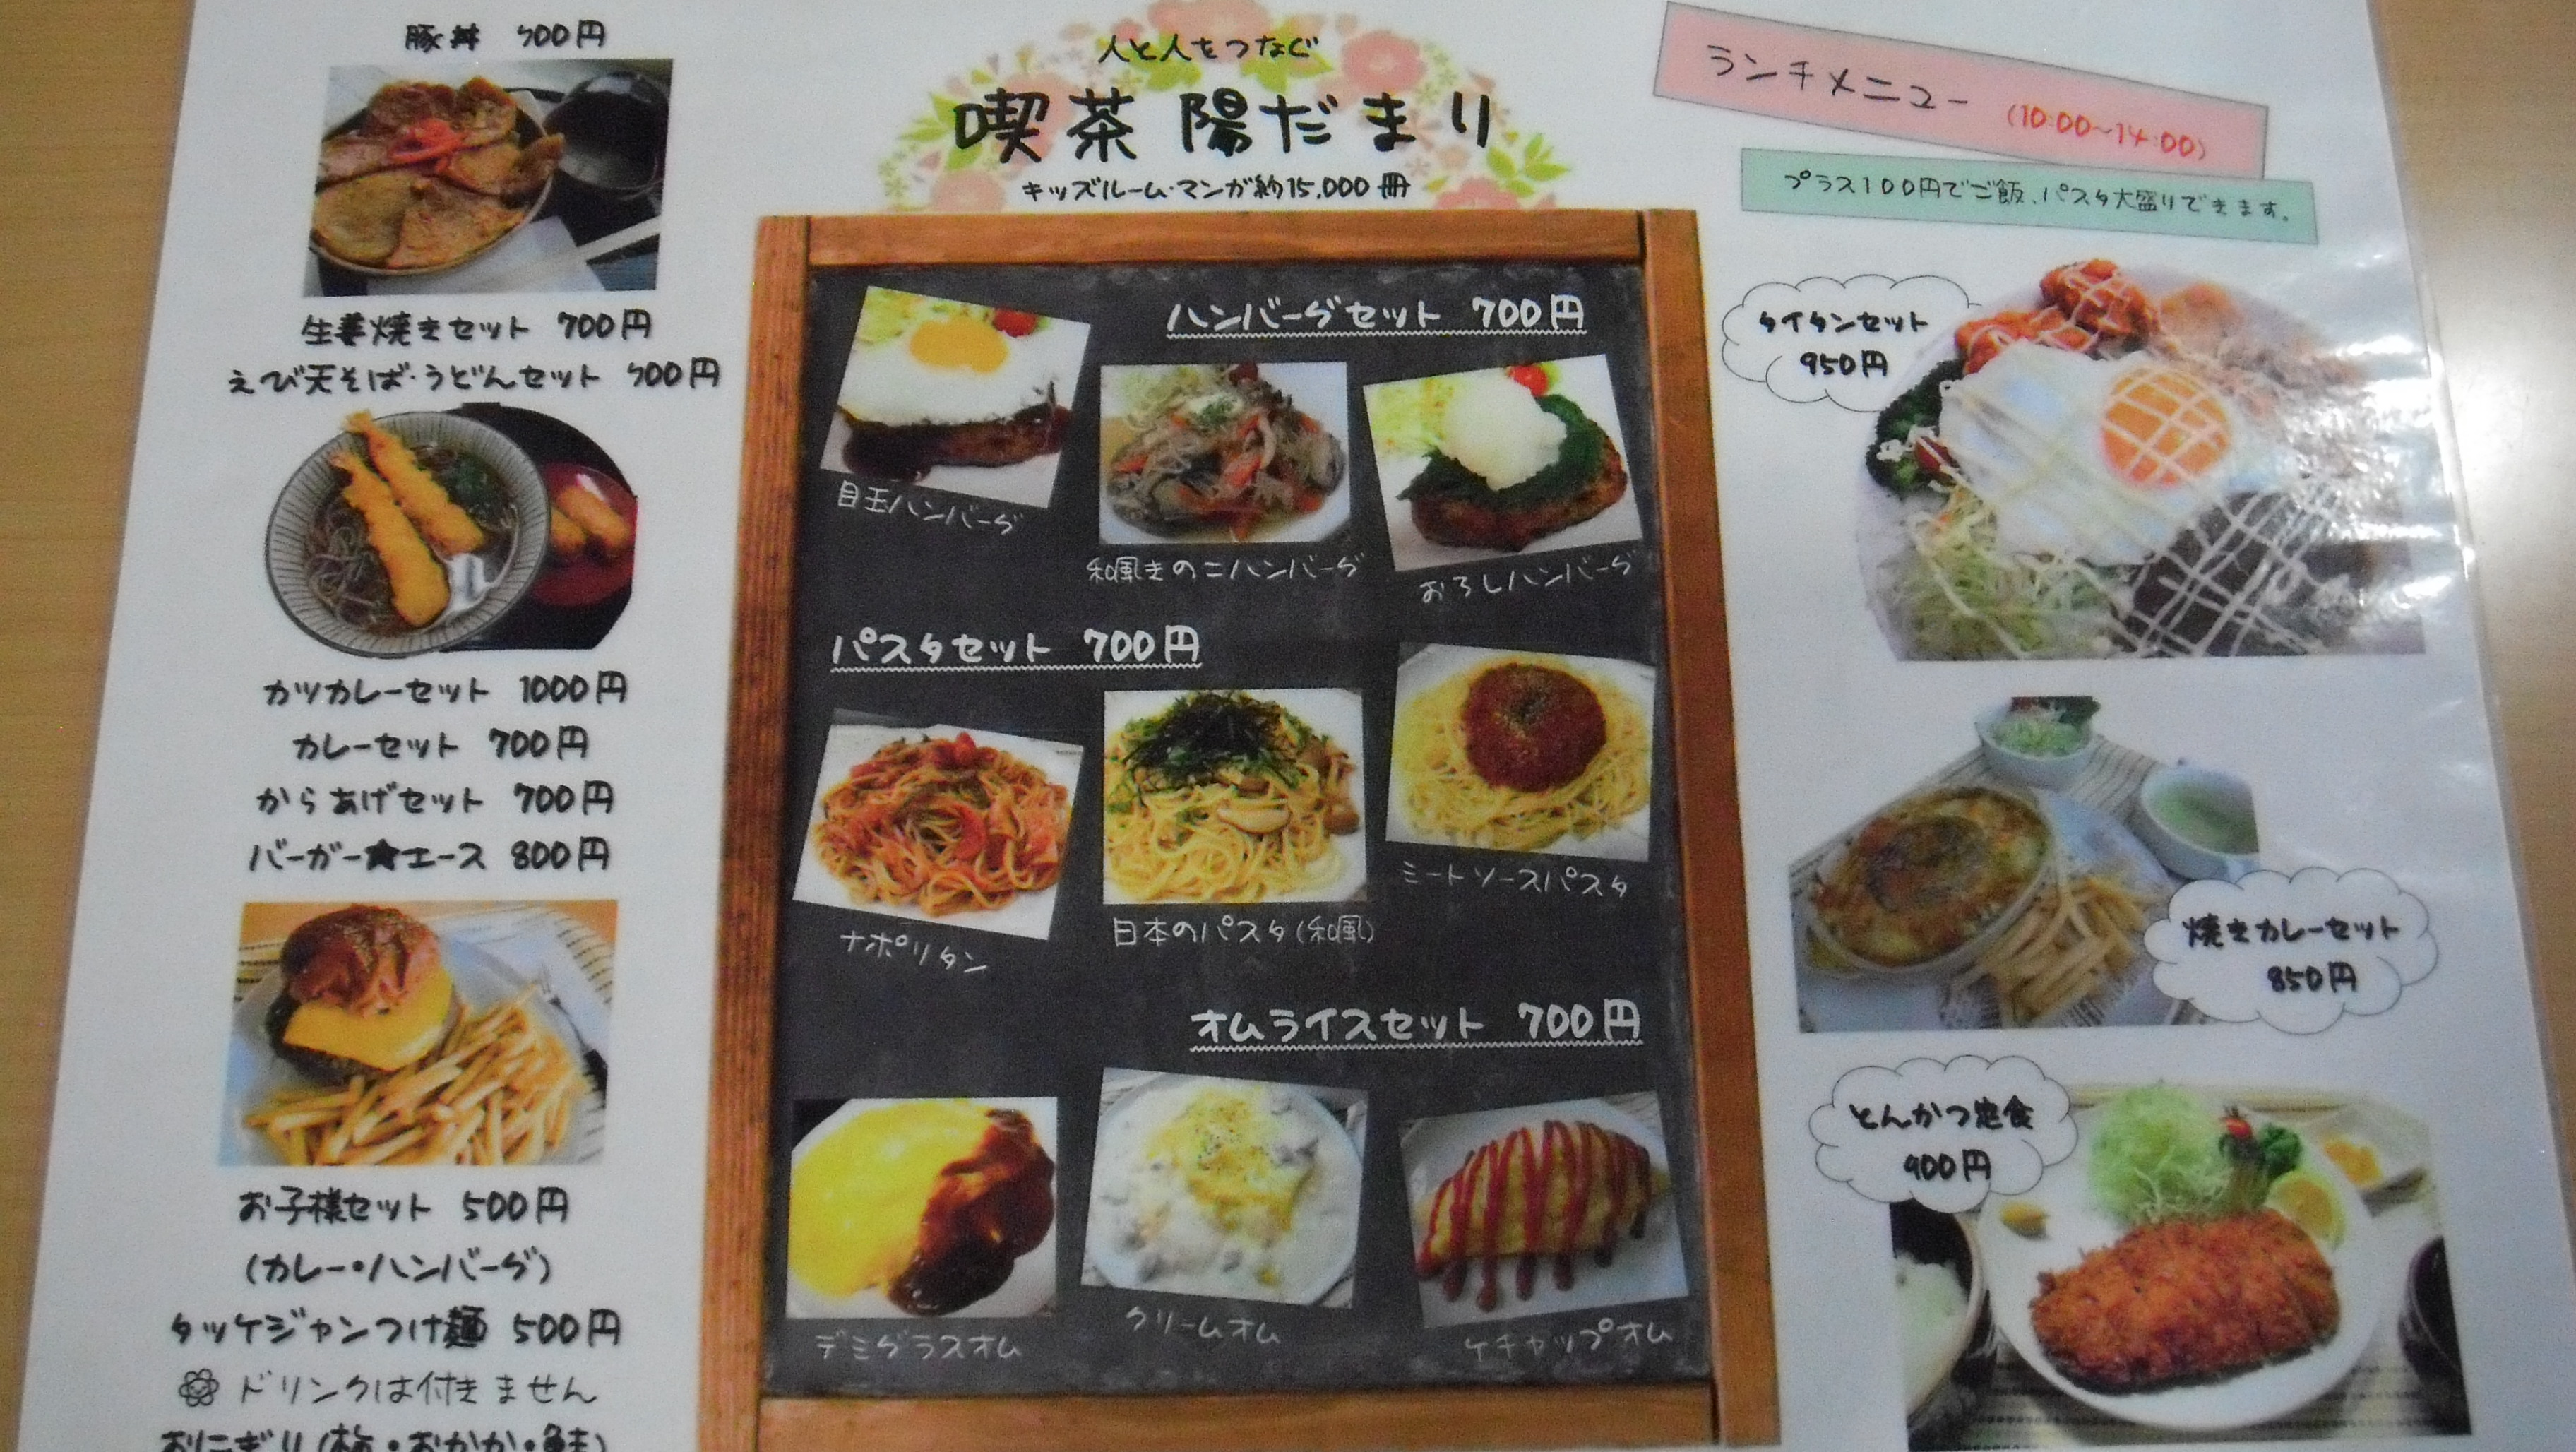 人と人をつなぐ
喫茶 陽だまり
キッズルーム・マンガ約15,000冊
ランチメニュー (10:00~14:00)
プラス100円でご飯、パスタ大盛りできます。
豚丼 900円
生姜焼きセット 700円
えび天そば・うどんセット 900円
カツカレーセット 1000円
カレーセット 700円
からあげセット 700円
バーガー★エース 800円
お子様セット 500円
(カレー・ハンバーグ)
タッケジャンつけ麺 500円
ドリンクは付きません
おにぎり(梅・おかか・鮭)
ハンバーグセット 700円
目玉ハンバーグ
和風きのこハンバーグ
おろしハンバーグ
パスタセット 700円
ナポリタン
日本のパスタ(和風)
ミートソースパスタ
オムライスセット 700円
デミグラスオム
クリームオム
ケチャップオム
タイタンセット
950円
焼きカレーセット
850円
とんかつ定食
900円